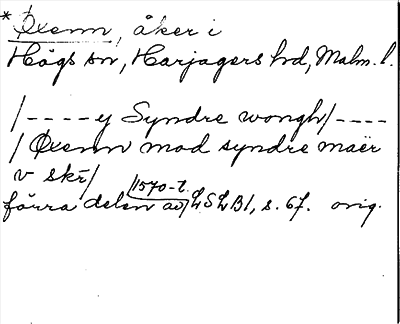 * Øxenn, åker i
Högs sn, Harjagers hd, Malm. l.
/----y Syndre wongh/----
/ Øxenn mod syndre maer
v skr/
förra delen av /1570-t./ LSLB1, s. 67. orig.